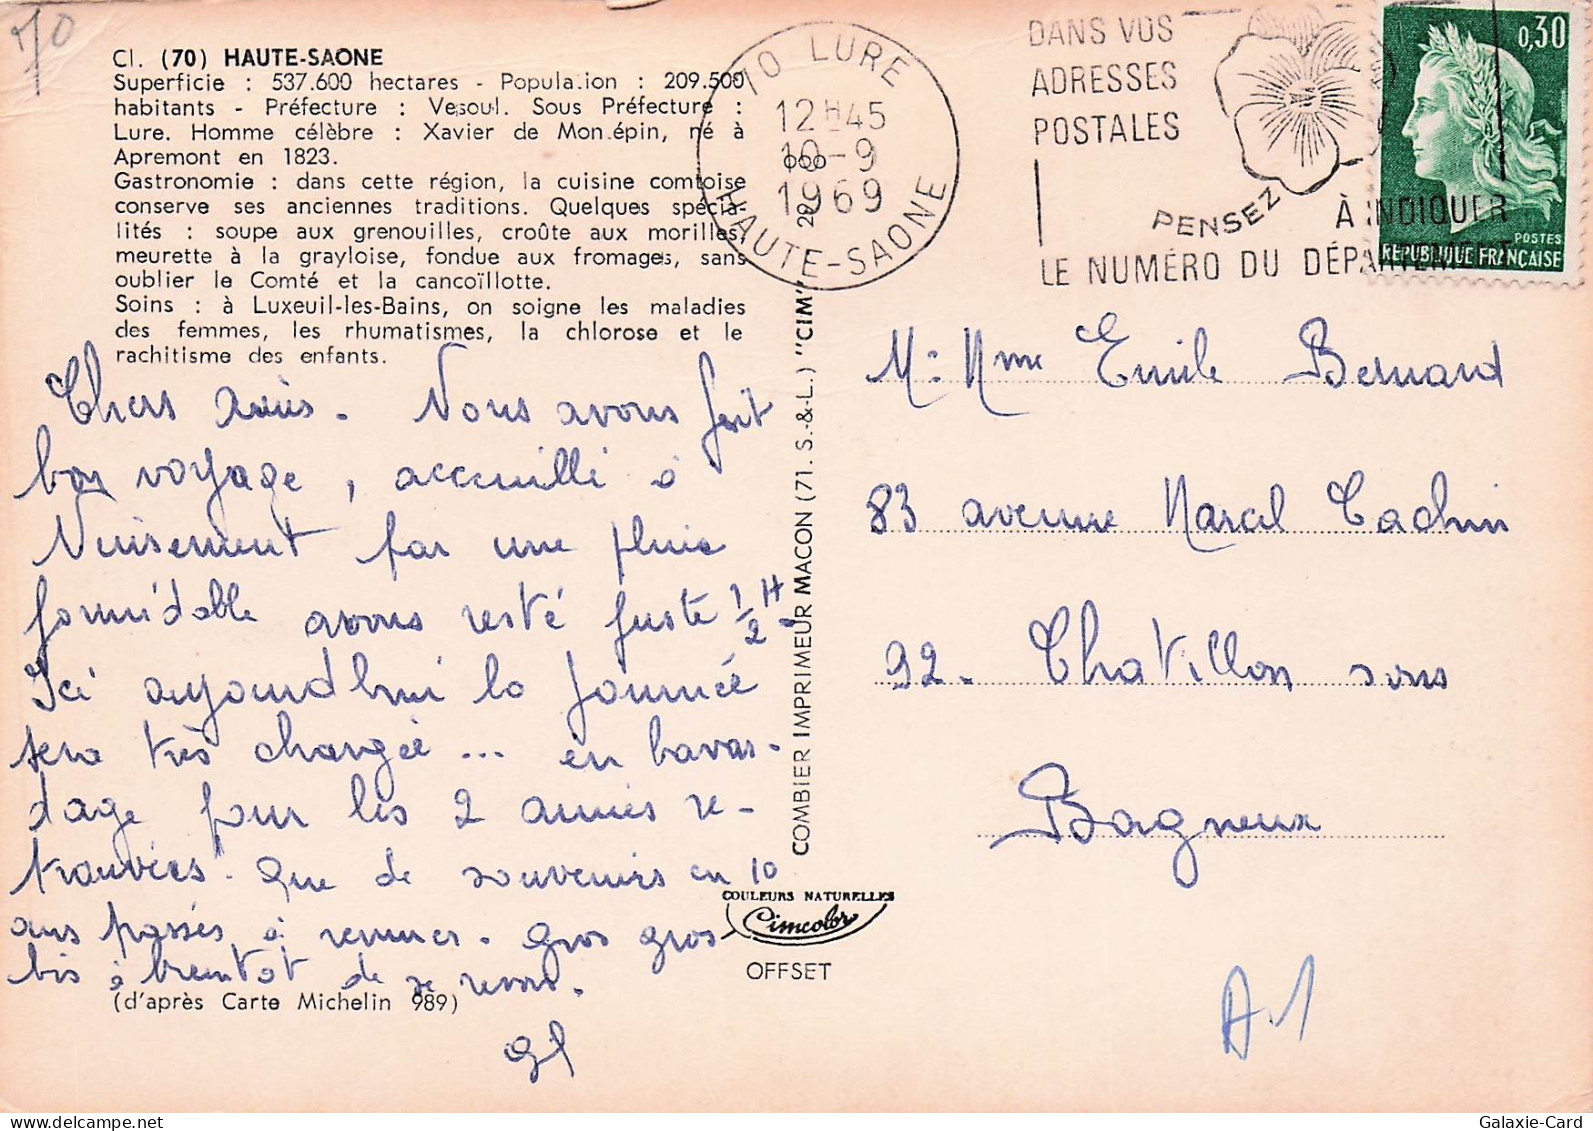 70
Cl. (70) HAUTE-SAONE
Superficie : 537.600 hectares - Popula.ion : 209.500
habitants - Préfecture : Vesoul. Sous Préfecture :
Lure. Homme célèbre : Xavier de Mon.épin, né à
Apremont en 1823.
Gastronomie : dans cette région, la cuisine comtoise
conserve ses anciennes traditions. Quelques spécia-
lités : soupe aux grenouilles, croûte aux morilles,
meurette à la grayloise, fondue aux fromages, sans
oublier le Comté et la cancoïllotte.
Soins : à Luxeuil-les-Bains, on soigne les maladies
des femmes, les rhumatismes, la chlorose et le
rachitisme des enfants.
Chers amis. Nous avons fait
bon voyage, accueilli à
Nuisement par une pluie
formidable avons resté juste 1/2 H
Ici aujourdhui la journée
sera très chargée ... en bavar-
dage pour les 2 amies re-
trouvées. que de souvenirs en 10
ans passés à remuer. gros gros
bis à bientot de se revoir.
(d'après Carte Michelin 989)
COMBIER IMPRIMEUR MACON (71. S.-&-L.) "CIM"
COULEURS NATURELLES
Cimcolor
OFFSET
70 LURE
12H45
10-9
1969
HAUTE-SAONE
DANS VOS
ADRESSES
POSTALES
PENSEZ
À INDIQUER
LE NUMÉRO DU DÉPARTEMENT
0,30
POSTES
REPUBLIQUE FRANÇAISE
Mr Mme Emile Bernard
83 avenue Marcel Cachin
92. Chatillon sous
Bagneux
A1
Galaxie-Card